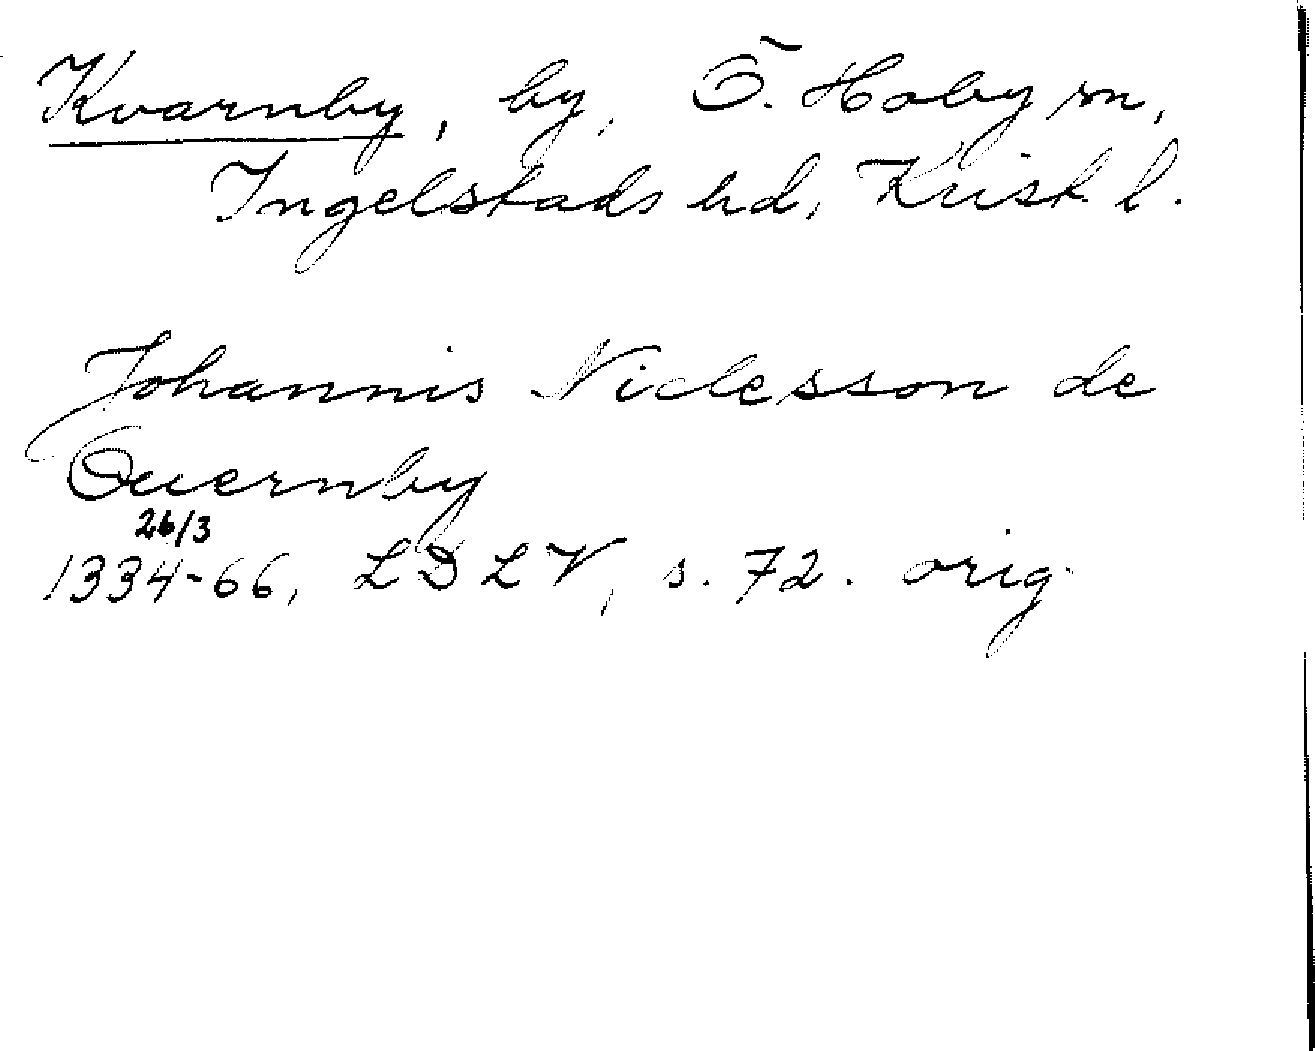 Kvarnby, by, Ö. Hoby sn,
Ingelstads hd, Krist. l.
Johannis Niclesson de
Quernby
26/3
1334-66, LDLV, s. 72. orig.